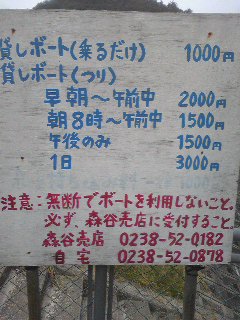 貸しボート(乗るだけ) 1000円
貸しボート(つり)
早朝～午前中 2000円
朝8時～午前中 1500円
午後のみ 1500円
1日 3000円
注意:無断でボートを利用しないこと。
必ず、森谷売店に受付すること。
森谷売店 0238-52-0182
自宅 0238-52-0878